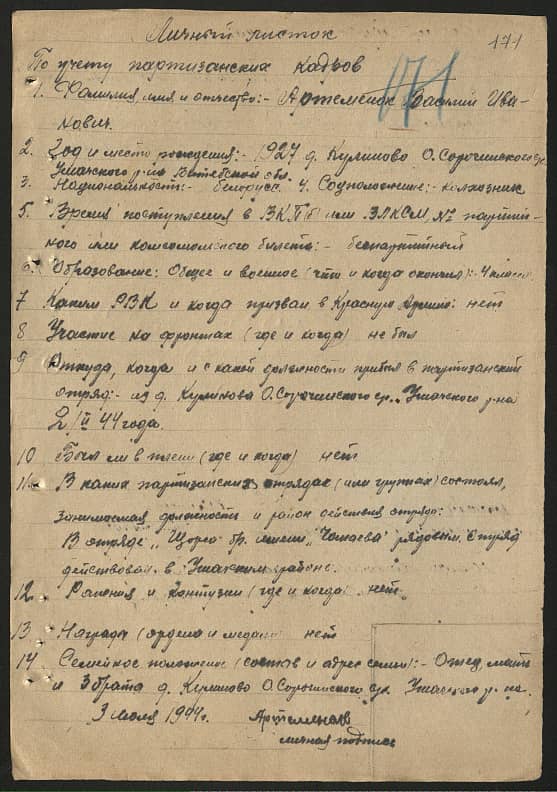 Личный листок
171
По учету партизанских кадров
171
1. Фамилия, имя и отчество:- Артеменок Василий Ива-
нович.
2. Год и место рождения:- 1927 д. Кулиново О.Сорочинского с/с
Ушачского р-на Витебской обл.
3. Национальность:- белорусс. 4. Соцположение:- колхозник
5. Время поступления в ВКП/б или ВЛКСМ, № партий-
ного или комсомольского билета:- беспартийный
6. Образование: Общее и военное (что и когда окончил):- 4 класса
7 Каким РВК и когда призван в Красную Армию: нет
8 Участие на фронтах (где и когда) не был
9 Откуда, когда и с какой должности прибыл в партизанский
отряд:- из д. Кулинова О.Сорочинского с/с, Ушачского р-на
2/II 44 года.
10 Был ли в плену (где и когда) нет
11. В каких партизанских отрядах (или группах) состоял,
занимаемая должность и район действия отряда:
В отряде "Щорса" бр. имени "Чапаева" рядовым. Отряд
действовал в Ушачским районе.
12. Ранения и контузии (где и когда) нет.
13 Награды (ордена и медали) нет
14 Семейное положение (состав и адрес семьи):- Отец, мать
и 3 брата д. Кулиново О.Сорочинского с/с. Ушачского р-на.
3 июля 1944г. Артеменок
личная подпись